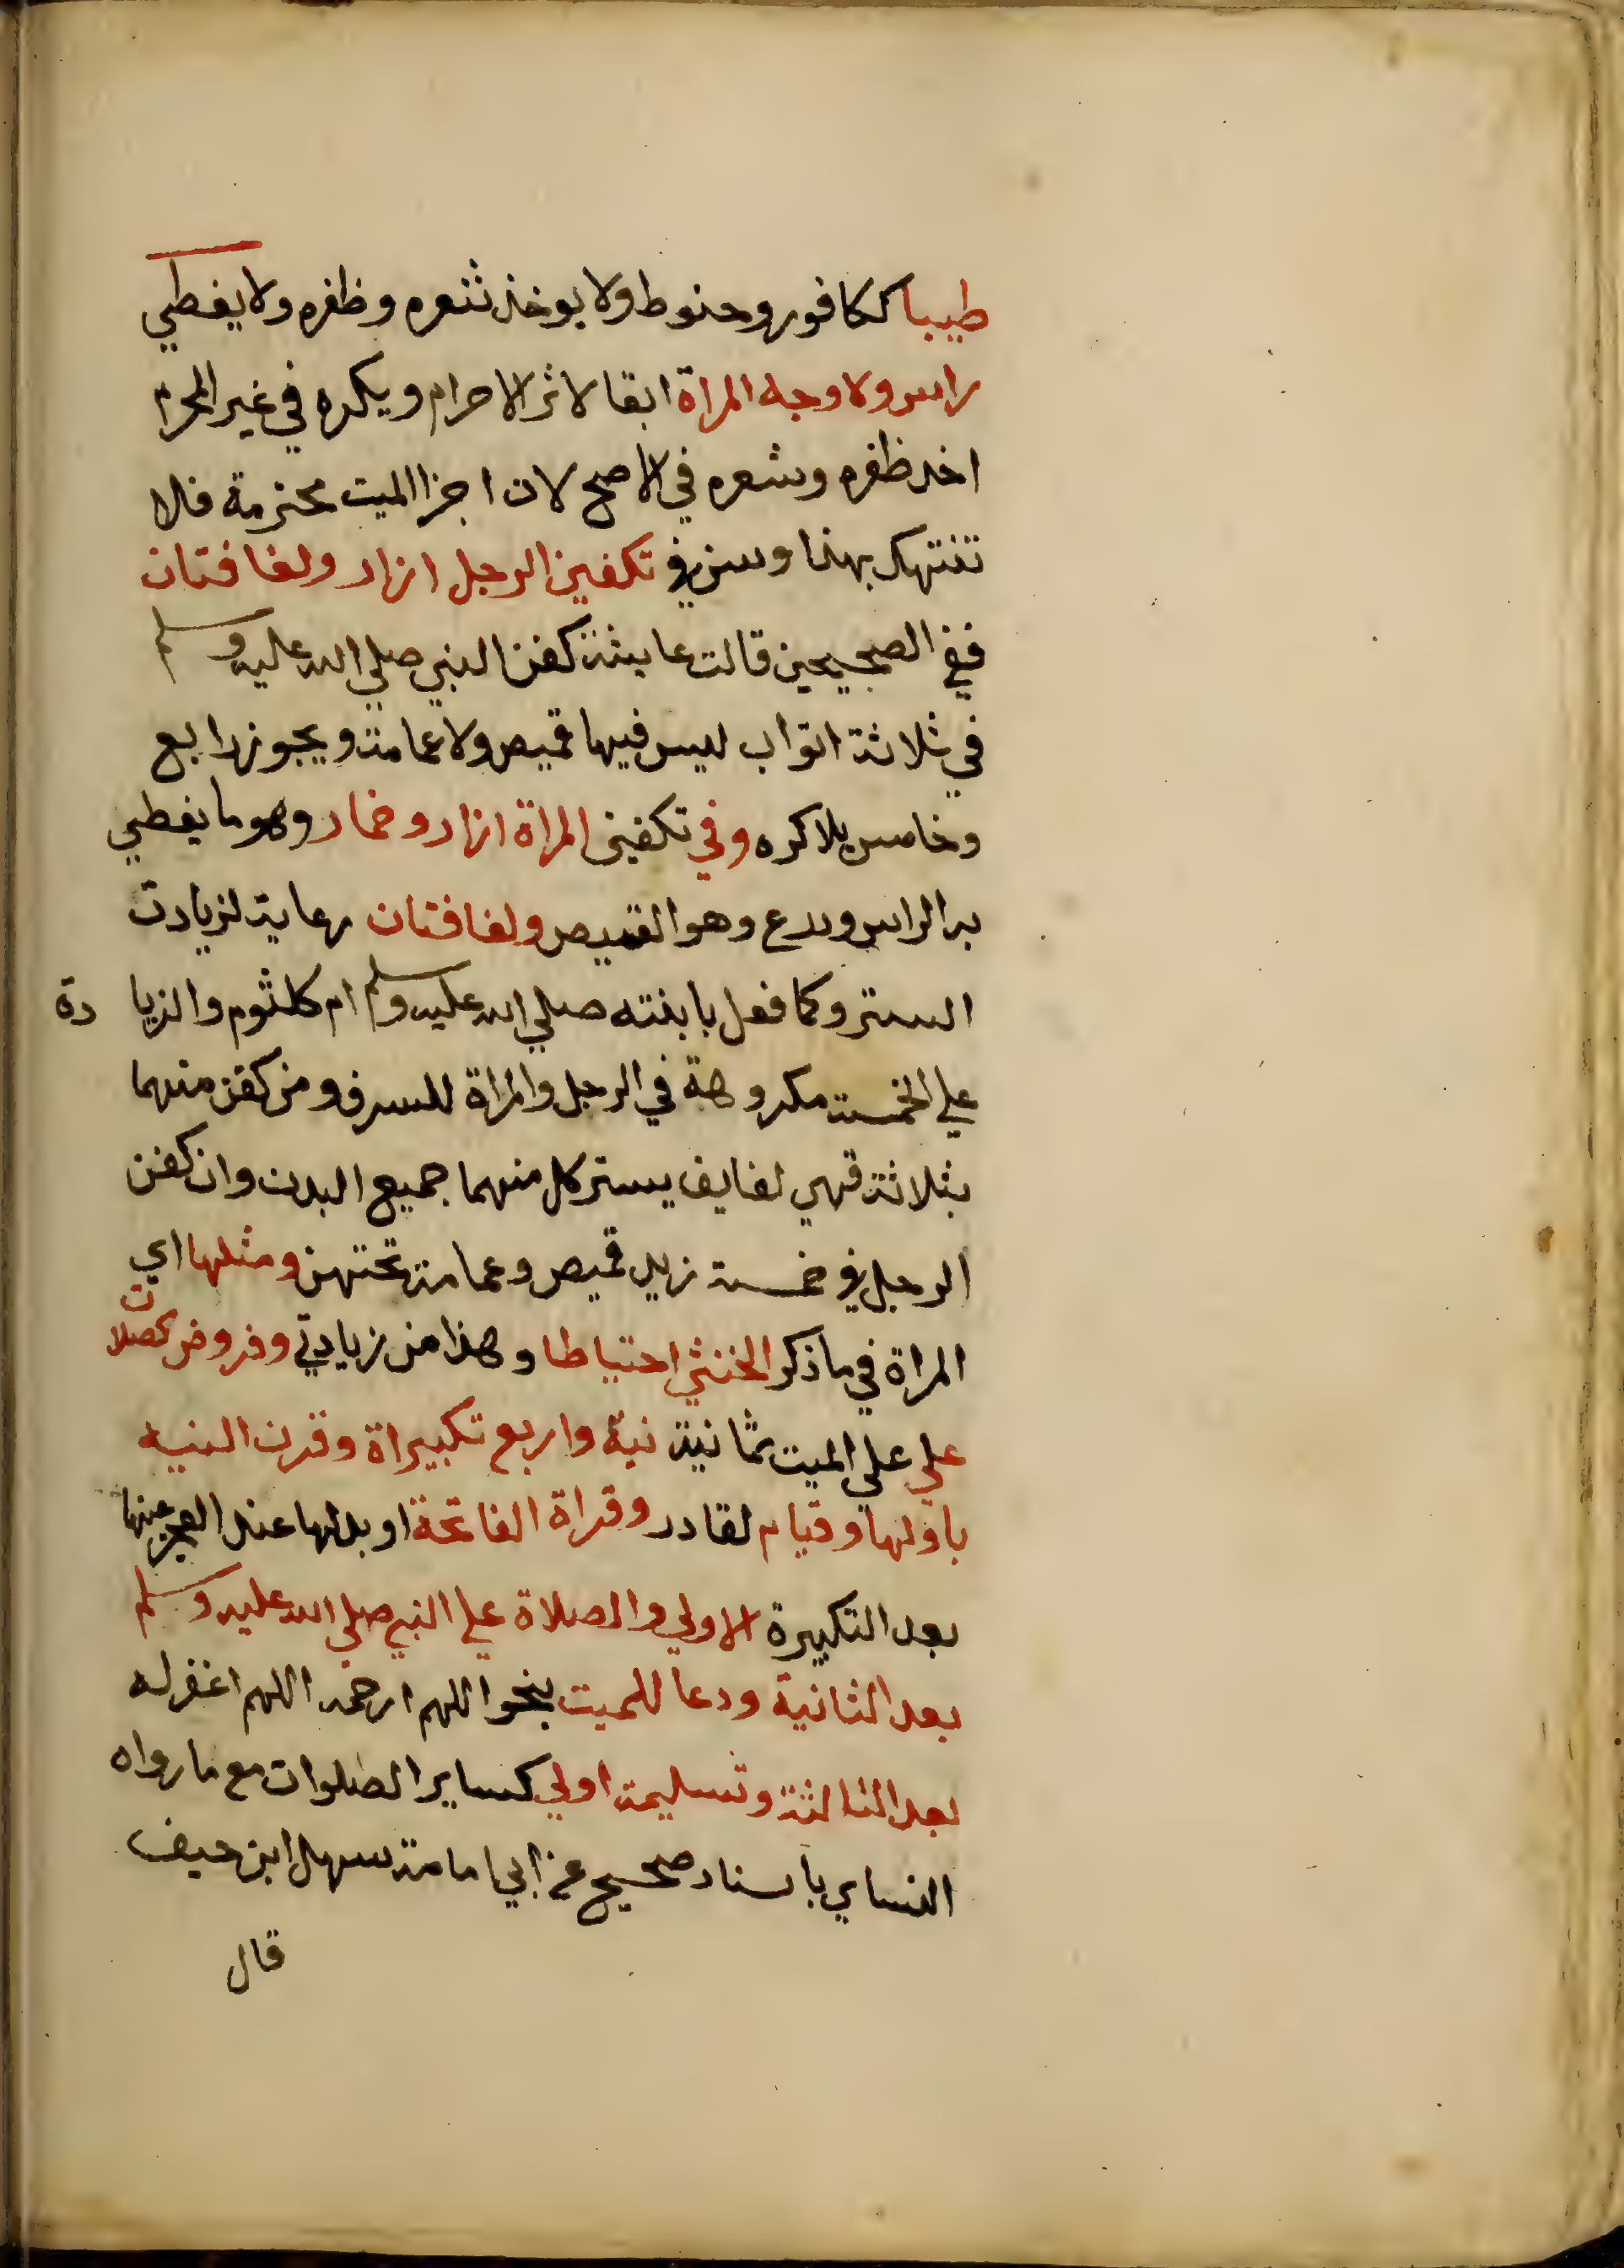 طيبا ككافور وحنوط ولا يوخذ شعره وظفره ولا يغطي
راس ولا وجه المراة ابقا لاثر الاحرام ويكره في غير المحرم
اخد ظفره وشعره في الاصح لان اجزا الميت محترمة فلا
تنتهك بهذا وسن في تكفين الرجل ازار ولفافتان
ففي الصحيحين قالت عايشة كفن النبي صلي الله عليه وسلم
في ثلاثة اثواب ليس فيها قميص ولا عمامة ويجوز رابع
وخامس بلا كره وفي تكفين المراة ازار وخمار وهو ما يغطي
به الراس ودرع وهو القميص ولفافتان رعاية لزيادت
الستر وكما فعل بابنته صلي الله عليه وسلم ام كلثوم والزيا دة
علي الخمسة مكروهة في الرجل والمراة للسرف ومن كفن منهما
بثلاثة فهي لفايف يستر كل منهما جميع البدن وان كفن
الرجل في خمسة زيد قميص وعمامة تحتهن ومثلها اي
المراة في ما ذكر الخنثي احتياطا وهذا من زيادتي وفروض لصلات
علي علي الميت ثمانية نية واربع تكبيراة وقرن النيه
باولها وقيام لقادر وقراة الفاتحة او بدلها عند العجز عنها
بعد التكبيرة الاولي والصلاة علي النبي صلي الله عليه وسلم
بعد الثانية ودعا للميت بنحو اللهم ارحمه اللهم اغفر له
بعد الثالثة وتسليمة اولي كساير الصلوات مع ما رواه
النساي باسناد صحيح عن ابي امامة سهل ابن حيف
قال